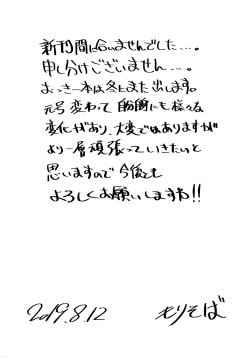 新刊間に合いませんでした…。
申し分けございません…。
おっきー本は冬にまた出します。
元号変わって自分にも様々な
変化があり、大変ではありますが
より一層頑張っていきたいと
思いますので今後とも
よろしくお願いしますね!!
2019.8.12 もりそば